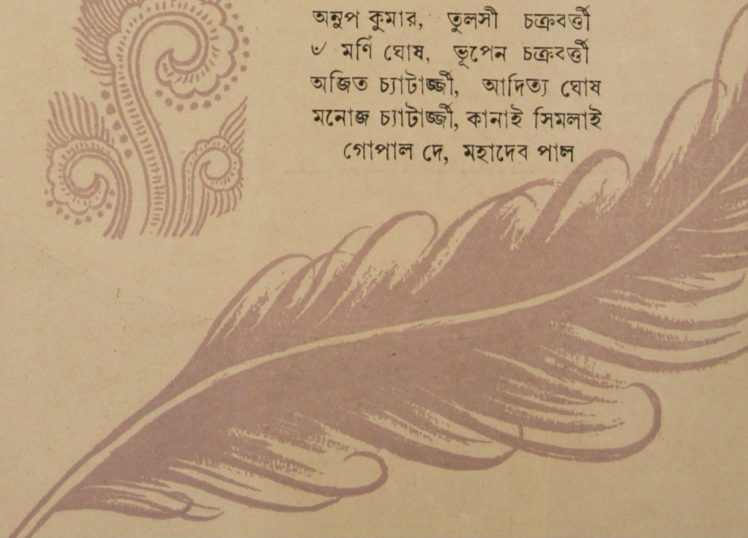 অনুপ কুমার, তুলসী চক্রবর্ত্তী
৺ মণি ঘোষ, ভূপেন চক্রবর্ত্তী
অজিত চ্যাটার্জ্জী, আদিত্য ঘোষ
মনোজ চ্যাটার্জ্জী, কানাই সিমলাই
গোপাল দে, মহাদেব পাল